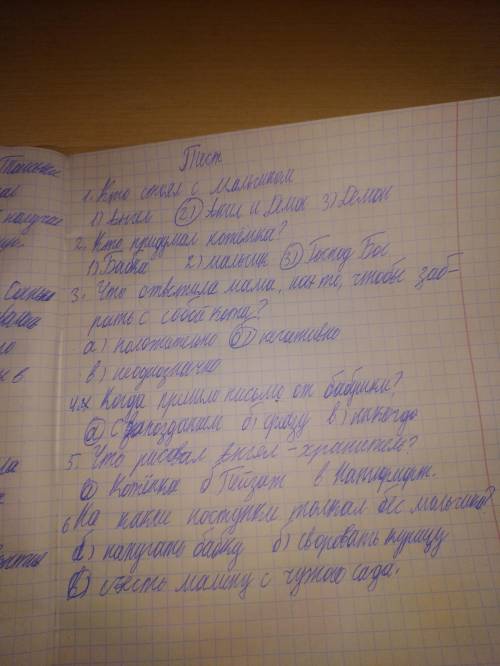 Тест
1. Кто стоял с мальчиком
1) Ангел 2) Ангел и Демон 3) Демон
2. Кто придумал котёнка?
1) Бабка 2) мальчик 3) Господ Бог
3. Что ответила мама, на то, чтобы заб-
рать с собой кота?
а) положительно б) негативно
в) неоднозначно
4. Когда пришло письмо от бабушки?
а) С запозданием б) сразу в) никогда
5. Что рисовал ангел-хранитель?
а Котёнка б Пейзаж в Натюрморт.
6 На какие поступки толкал бес мальчика?
а) напугать бабку б) своровать курицу
в) съесть малину с чужого сада.
получае
в